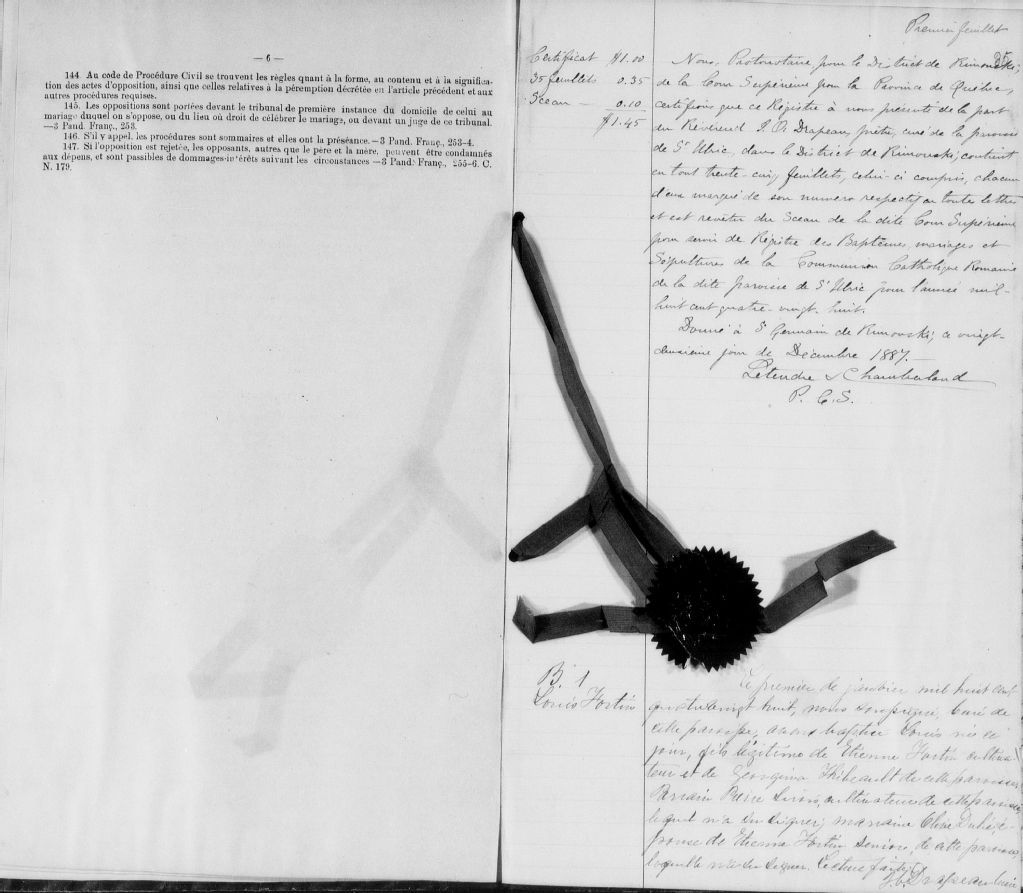 — 6 —
144 Au code de Procédure Civil se trouvent les règles quant à la forme, au contenu et à la significa-
tion des actes d'opposition, ainsi que celles relatives à la péremption décrétée en l'article précédent et aux
autres procédures requises.
145. Les oppositions sont portées devant le tribunal de première instance du domicile de celui au
mariage duquel on s'oppose, ou du lieu où droit de célébrer le mariage, ou devant un juge de ce tribunal.
—3 Pand. Franç., 253.
146. S'il y appel, les procédures sont sommaires et elles ont la préséance.—3 Pand. Franç., 253-4.
147. Si l'opposition est rejetée, les opposants, autres que le père et la mère, peuvent être condamnés
aux dépens, et sont passibles de dommages-intérêts suivant les circonstances —3 Pand. Franç., 255-6. C.
N. 179.
Premier feuillet
Certificat $1.00
35 feuillets 0.35
Sceau — 0.10
$1.45
Nous, Protonotaire pour le District de Rimouski,
de la Cour Supérieure pour la Province de Québec,
certifions que ce Régistre à nous présenté de la part
du Révérend J. O. Drapeau, prêtre, curé de la paroisse
de St Ulric, dans le District de Rimouski, contient
en tout trente-cinq feuillets, celui-ci compris, chacun
d'eux marqué de son numéro respectif en toute lettre
et est revêtu du Sceau de la dite Cour Supérieure
pour servir de Régistre des Baptêmes mariages et
Sépultures de la Communion Catholique Romaine
de la dite paroisse de St Ulric pour l'année mil-
huit cent quatre-vingt-huit.
Donné à St Germain de Rimouski, ce vingt-
deuxième jour de Décembre 1887.—
Letendre & Chamberland
P. C. S.
B. 1
Louis Fortin
Le premier de janvier mil huit cent
quatrevingt huit, nous soussigné, Curé de
cette paroisse, avons baptisé Louis né ce
jour, fils légitime de Etienne Fortin cultiva-
teur et de Georgina Thibeault de cette paroisse.
Parrain cultivateur de cette paroisse
lequel n'a su signer; marraine
pouse de Etienne Fortin senior, de cette paroisse,
laquelle n'a su signer. Lecture faite
Drapeau Curé